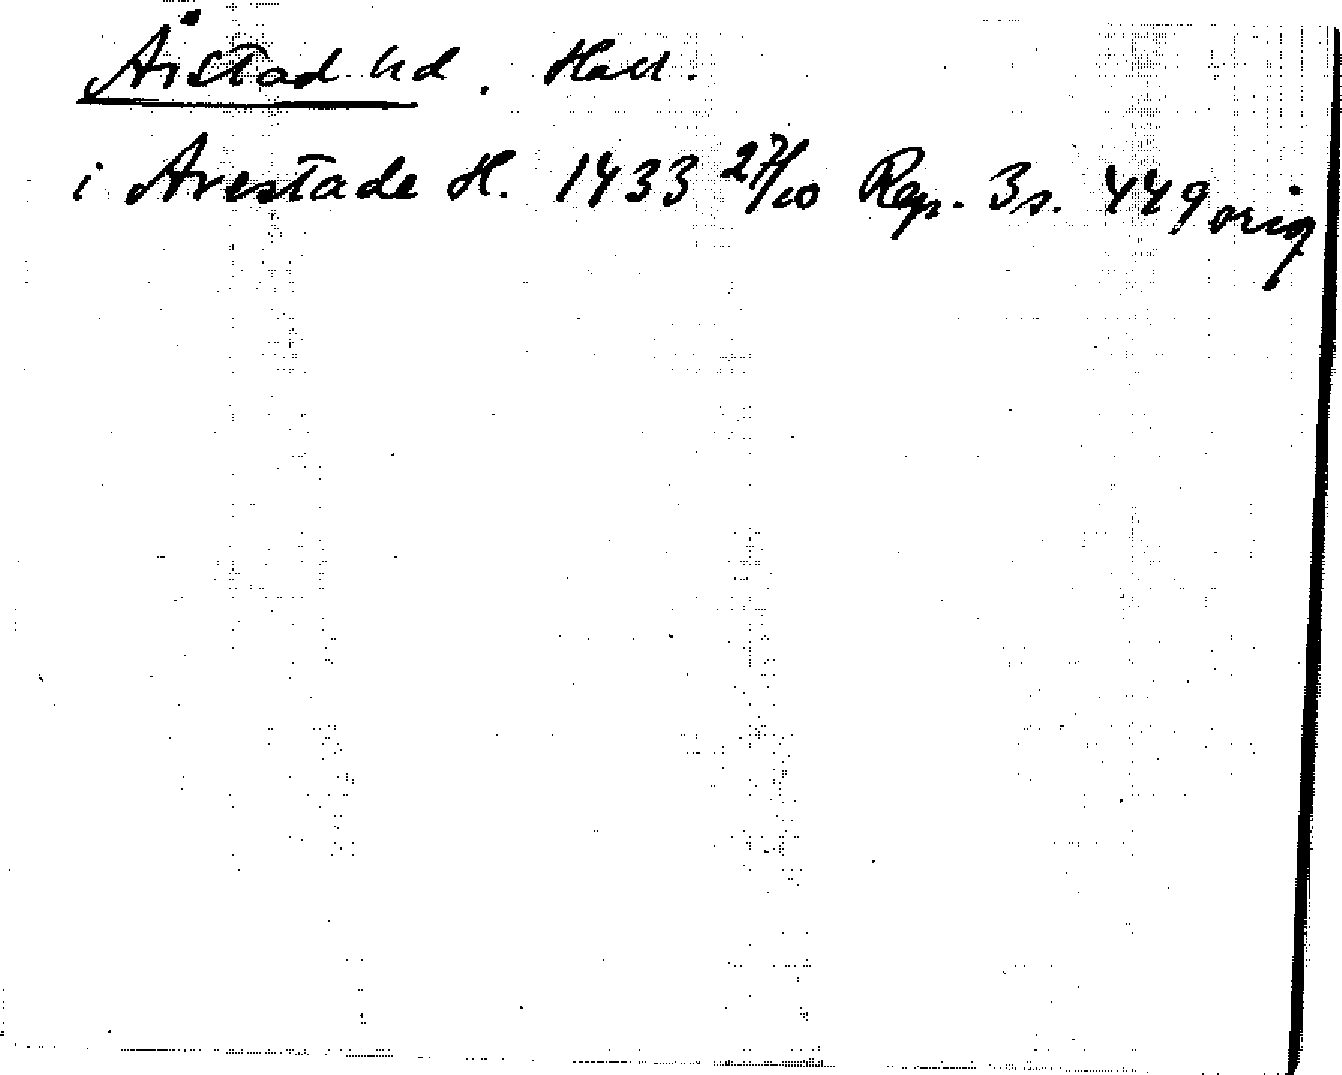 Årstad hd. Hall.
i Arestade H. 1433 27/10 Rep. 3 s. 449 orig